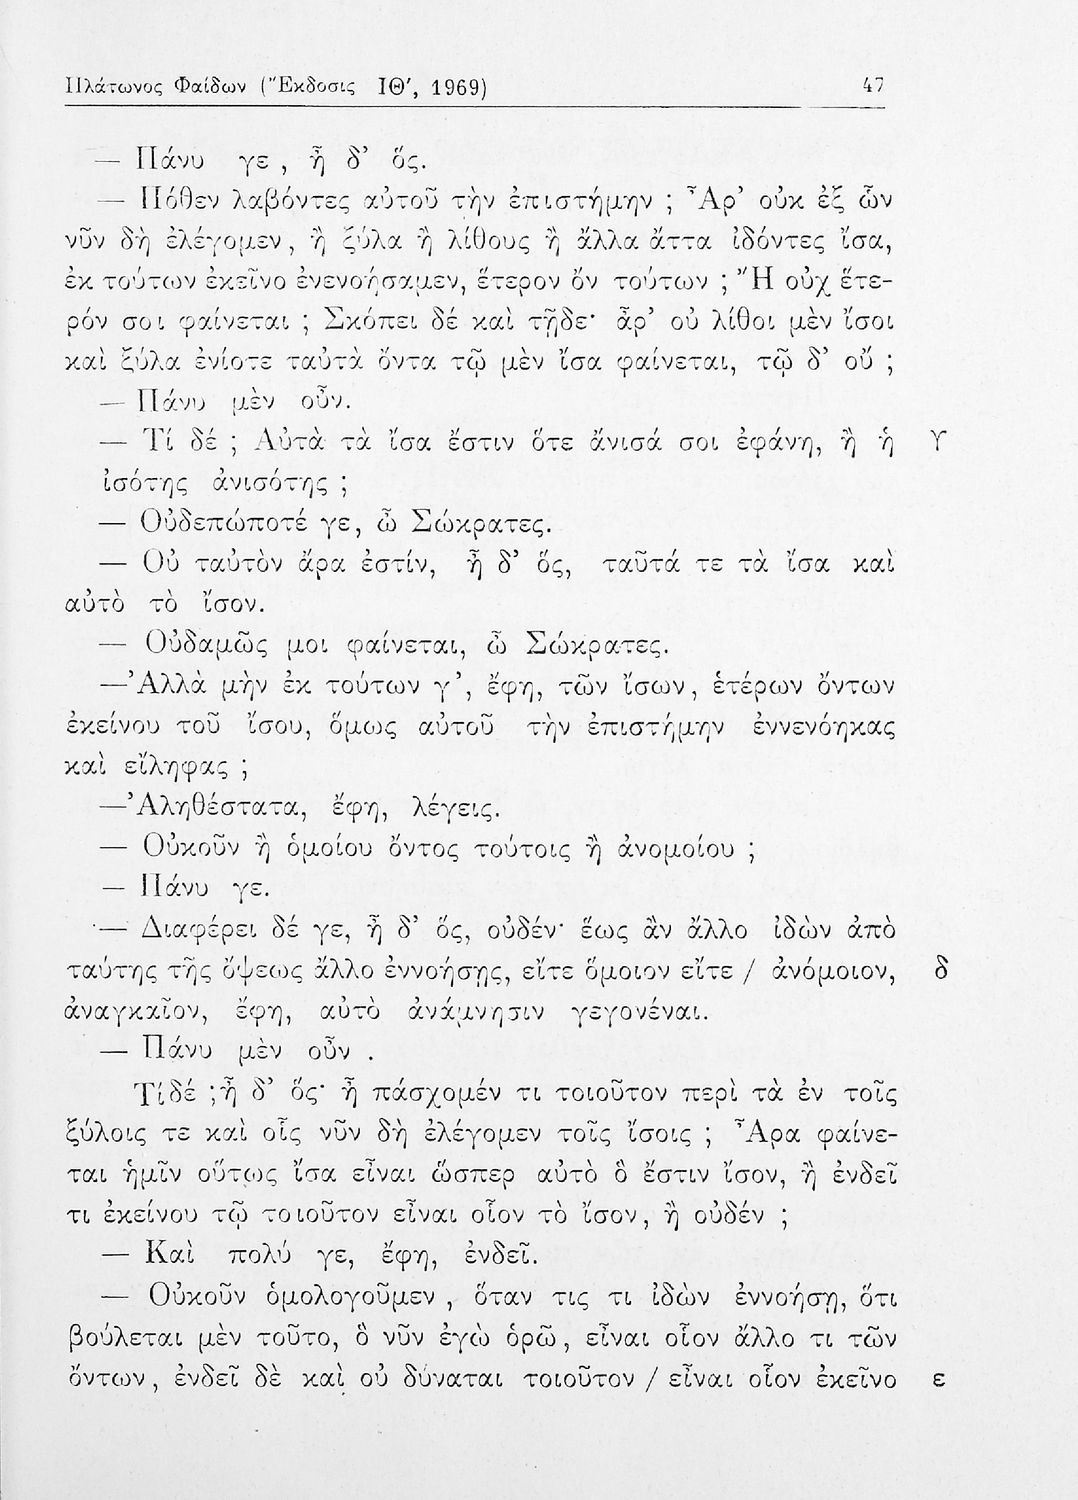 Πλάτωνος Φαίδων (Ἔκδοσις ΙΘ', 1969) 47
— Πάνυ γε , ἦ δ' ὅς.
— Πόθεν λαβόντες αὐτοῦ τὴν ἐπιστήμην ; Ἆρ' οὐκ ἐξ ὧν
νῦν δὴ ἐλέγομεν, ἢ ξύλα ἢ λίθους ἢ ἄλλα ἄττα ἰδόντες ἴσα,
ἐκ τούτων ἐκεῖνο ἐνενοήσαμεν, ἕτερον ὂν τούτων ; Ἢ οὐχ ἕτε-
ρόν σοι φαίνεται ; Σκόπει δέ καὶ τῇδε· ἆρ' οὐ λίθοι μὲν ἴσοι
καὶ ξύλα ἐνίοτε ταὐτὰ ὄντα τῷ μὲν ἴσα φαίνεται, τῷ δ' οὔ ;
— Πάνυ μὲν οὖν.
— Τί δέ ; Αὐτὰ τὰ ἴσα ἔστιν ὅτε ἄνισά σοι ἐφάνη, ἢ ἡ γ
ἰσότης ἀνισότης ;
— Οὐδεπώποτέ γε, ὦ Σώκρατες.
— Οὐ ταὐτὸν ἄρα ἐστίν, ἦ δ' ὅς, ταῦτά τε τὰ ἴσα καὶ
αὐτὸ τὸ ἴσον.
— Οὐδαμῶς μοι φαίνεται, ὦ Σώκρατες.
—Ἀλλὰ μὴν ἐκ τούτων γ', ἔφη, τῶν ἴσων, ἑτέρων ὄντων
ἐκείνου τοῦ ἴσου, ὅμως αὐτοῦ τὴν ἐπιστήμην ἐννενόηκας
καὶ εἴληφας ;
—Ἀληθέστατα, ἔφη, λέγεις.
— Οὐκοῦν ἢ ὁμοίου ὄντος τούτοις ἢ ἀνομοίου ;
— Πάνυ γε.
— Διαφέρει δέ γε, ἦ δ' ὅς, οὐδέν· ἕως ἂν ἄλλο ἰδὼν ἀπὸ
ταύτης τῆς ὄψεως ἄλλο ἐννοήσῃς, εἴτε ὅμοιον εἴτε / ἀνόμοιον, δ
ἀναγκαῖον, ἔφη, αὐτὸ ἀνάμνησιν γεγονέναι.
— Πάνυ μὲν οὖν .
Τίδέ ;ἦ δ' ὅς· ἦ πάσχομέν τι τοιοῦτον περὶ τὰ ἐν τοῖς
ξύλοις τε καὶ οἷς νῦν δὴ ἐλέγομεν τοῖς ἴσοις ; Ἆρα φαίνε-
ται ἡμῖν οὕτως ἴσα εἶναι ὥσπερ αὐτὸ ὃ ἔστιν ἴσον, ἢ ἐνδεῖ
τι ἐκείνου τῷ τοιοῦτον εἶναι οἷον τὸ ἴσον, ἢ οὐδέν ;
— Καὶ πολύ γε, ἔφη, ἐνδεῖ.
— Οὐκοῦν ὁμολογοῦμεν , ὅταν τις τι ἰδὼν ἐννοήσῃ, ὅτι
βούλεται μὲν τοῦτο, ὃ νῦν ἐγὼ ὁρῶ, εἶναι οἷον ἄλλο τι τῶν
ὄντων, ἐνδεῖ δὲ καὶ οὐ δύναται τοιοῦτον / εἶναι οἷον ἐκεῖνο ε